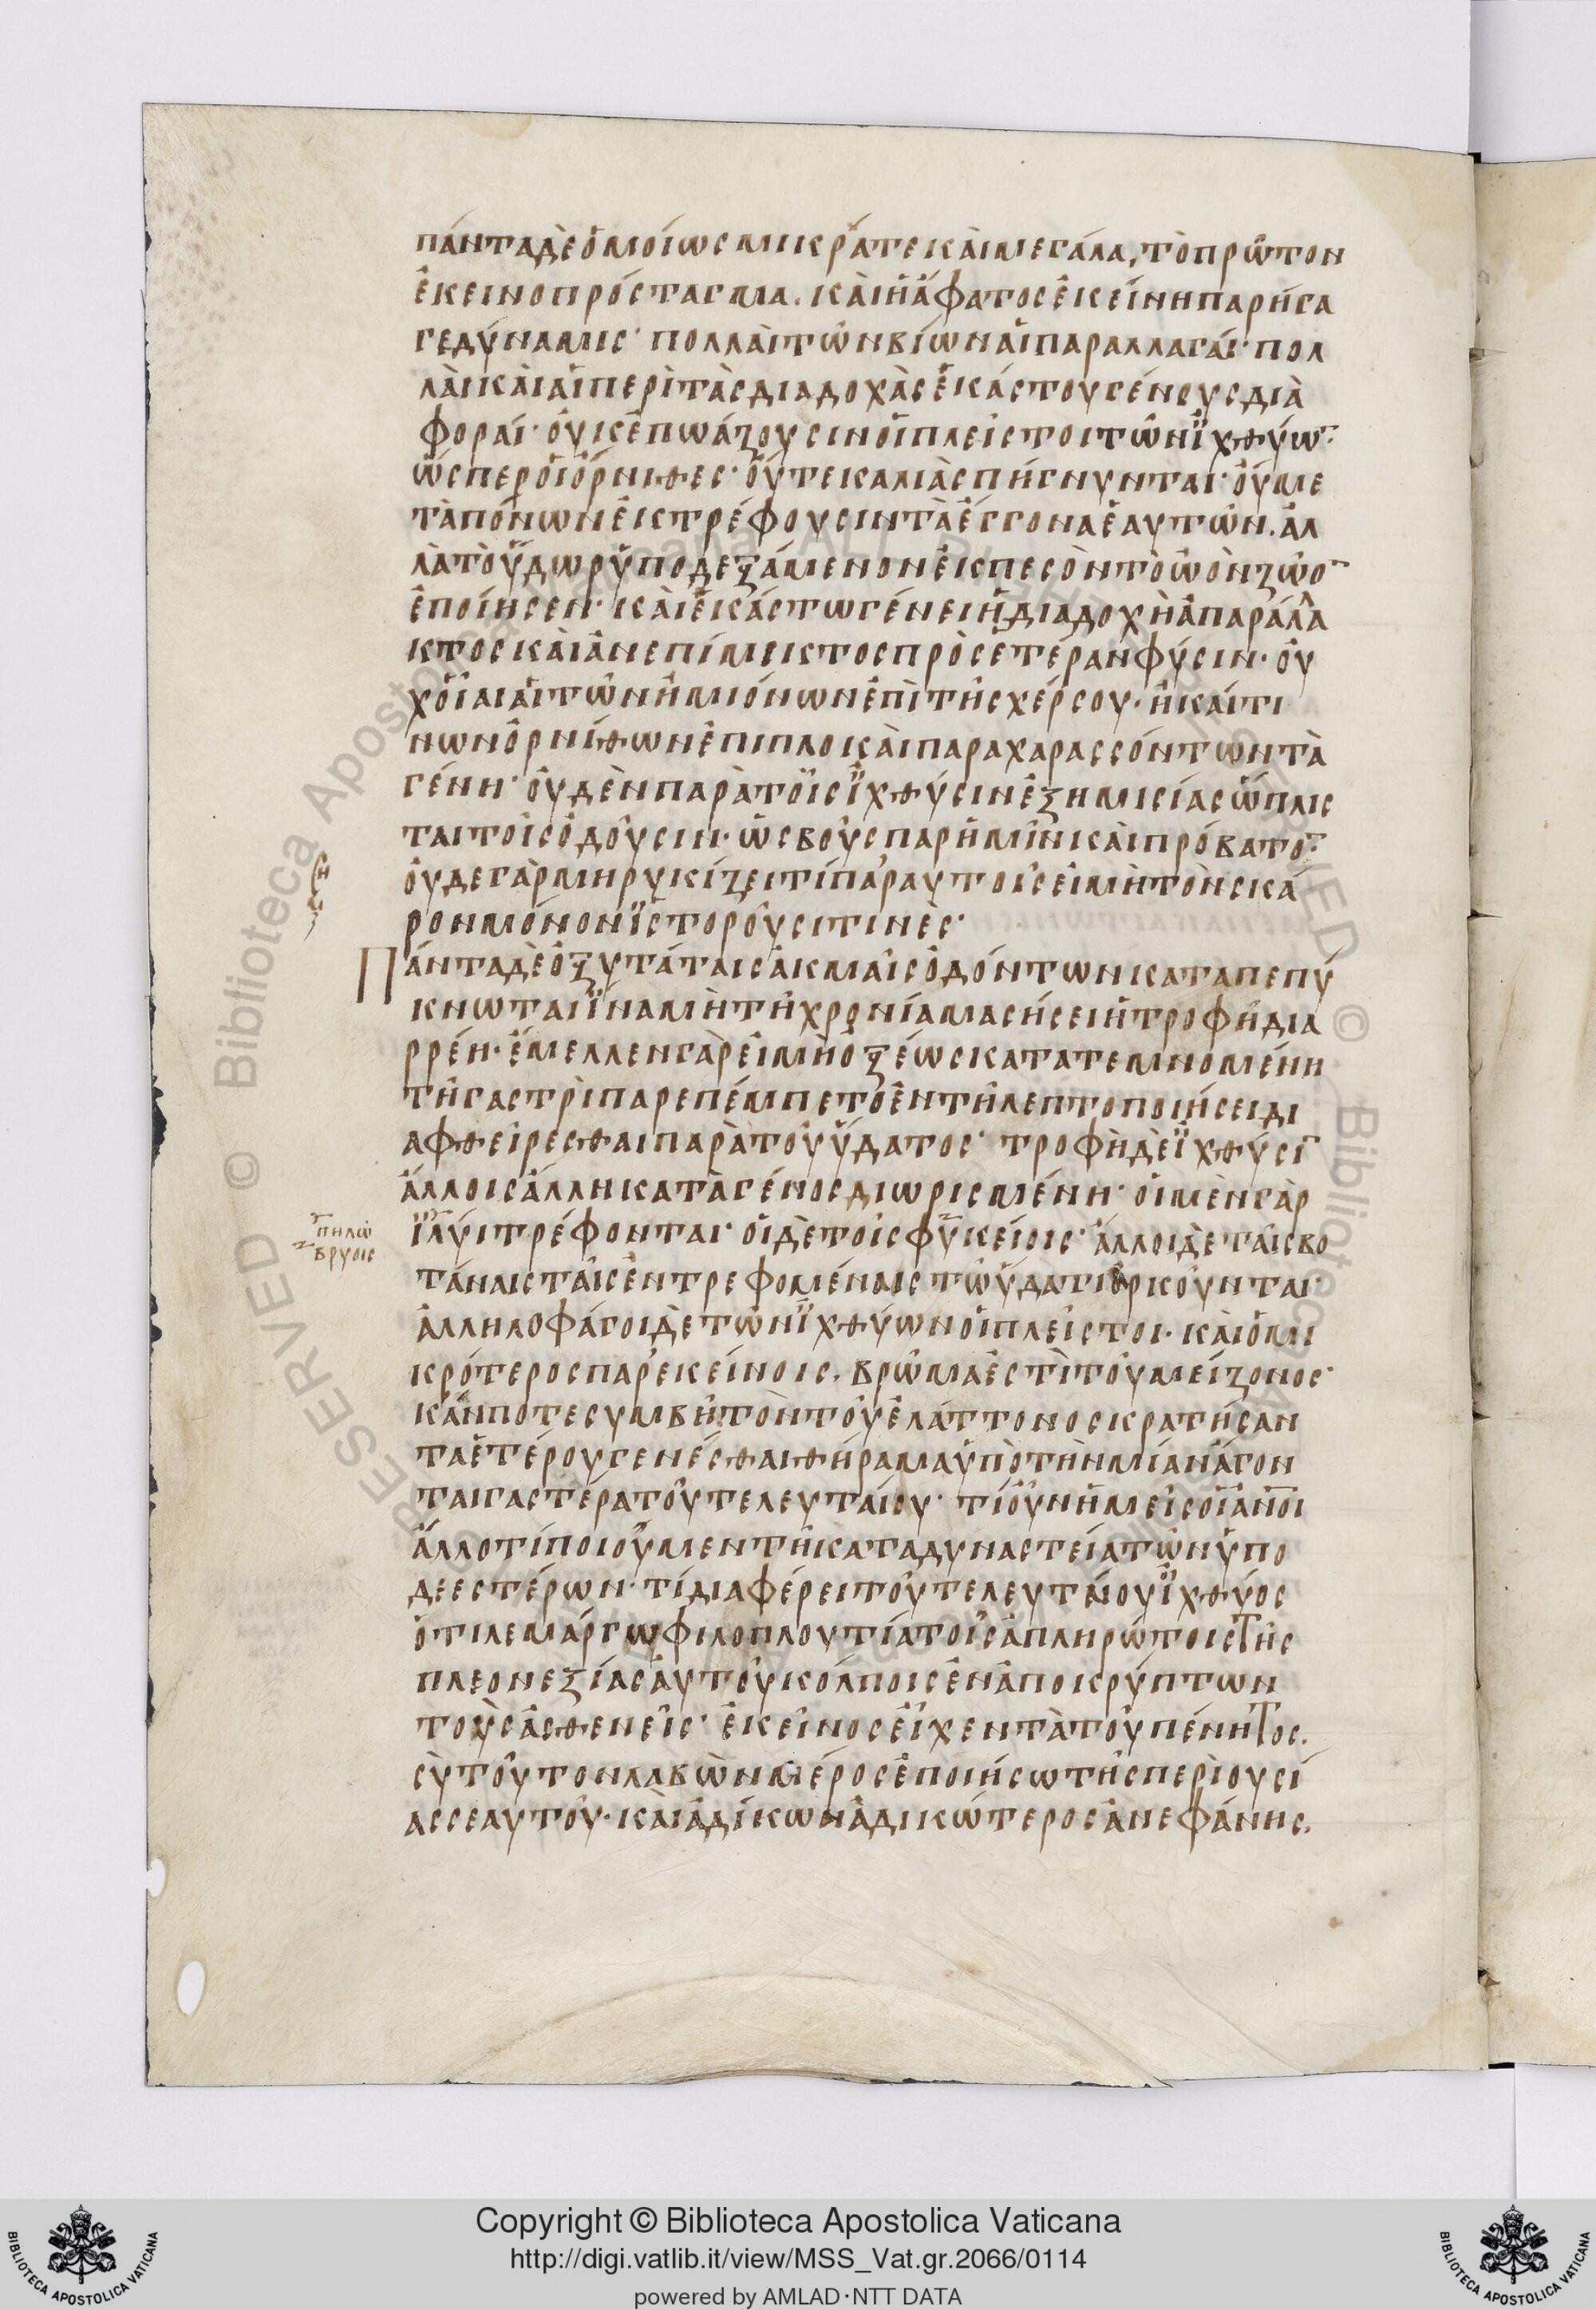 πάντα δὲ ὁμοίως μικρά τε καὶ μεγάλα, τὸ πρῶτον
ἐκεῖνο πρόσταγμα. καὶ ἡ ἄφατος ἐκείνη παρήγα
γε δύναμις· πολλαὶ τῶν βίων αἱ παραλλαγαί· πολ
λαὶ καὶ αἱ περὶ τὰς διαδοχὰς ἑκάστου γένους δια
φοραί· οὐκ ἐπωάζουσιν οἱ πλεῖστοι τῶν ἰχθύω̅
ὥσπερ οἱ ὄρνιθες· οὔτε καλιὰς πήγνυνται· οὐ με
τὰ πόνων ἐκτρέφουσιν τὰ ἔγγονα ἑαυτῶν. ἀλ
λὰ τὸ ὕδωρ ὑποδεξάμενον ἐκπεσὸν τὸ ὠὸν ζῶο̅
ἐποίησεν· καὶ ἑκάστω γένει ἡ διαδοχὴ ἀπαράλλα
κτος καὶ ἀνεπίμικτος πρὸς ἑτέραν φύσιν· οὐ
χ οἷαι αἱ τῶν ἡμιόνων ἐπὶ τῆς χέρσου· ἢ καί τι
νων ὀρνίθων ἐπιπλοκαὶ παραχαρασσόντων τὰ
γένη· οὐδὲν παρὰ τοῖς ἰχθύσιν ἐξ ἡμισίας ὥπλισ
ται τοῖς ὀδοῦσιν· ὡς βοῦς παρ ἡμῖν καὶ πρόβατο̅
οὐδε γὰρ μηρυκίζει τί παρ αυτοῖς εἰ μὴ τὸν σκά
ρον μόνον ἱστοροῦσι τινὲς·
Πάντα δὲ ὀξυτάταις ἀκμαῖς ὀδόντων καταπεπύ
κνωται ἵνα μὴ τῆ χρονία μασήσει ἡ τροφὴ δια
ρρέη· ἔμελλεν γὰρ εἰ μὴ ὀξέως κατατεμνομένη
τῆ γαστρὶ παρεπέμπετο ἐν τῆ λεπτοποιήσει δι
αφθείρεσθαι παρὰ τοῦ ὕδατος· τροφὴ δὲ ἰχθύσι̅
ἄλλοις ἄλλη κατὰ γένος διωρισμένη· οἱ μὲν γὰρ
ἰλύι τρέφονται· οἱ δὲ τοῖς φυκείοις· ἄλλοι δὲ ταῖς βο
πηλῶ
βρυοις
τάναις ταῖς ἐντρεφομέναις τῶ ὕδατι ἀρκοῦνται·
ἀλληλοφάγοι δὲ τῶν ἰχθύων οἱ πλεῖστοι· καὶ ὁ μι
κρότερος παρ εκείνοις. βρῶμα ἐστὶ τοῦ μείζονος·
κἄν ποτε συμβῆ τὸν τοῦ ἐλάττονος κρατήσαν
τα ἑτέρου γενέσθαι θήραμα ὑπὸ τὴν μίαν ἄγον
ται γαστέρα τοῦ τελευταίου· τί οὖν ἡμεῖς οἱ α̅ν̅ο̅ι̅
ἄλλο τί ποιοῦμεν τῆ καταδυναστεία τῶν ὑπο
δεεστέρων· τί διαφέρει τοῦ τελευταίου ἰχθύος
ὁ τι λεμάργω φιλοπλουτία τοῖς ἀπληρώτοις τῆς
πλεονεξίας αὐτοῦ κόλποις ἐναποκρύπτων
τοὺς ἀσθενεῖς· ἐκεῖνος εἶχεν τὰ τοῦ πένητος.
σὺ τοῦτον λαβὼν μέρος ἐποιήσω τῆς περιουσί
ας σεαυτοῦ· καὶ ἀδίκων ἀδικώτερος ἀνεφάνης.
Copyright © Biblioteca Apostolica Vaticana
http://digi.vatlib.it/view/MSS_Vat.gr.2066/0114
powered by AMLAD·NTT DATA
BIBLIOTECA APOSTOLICA VATICANA
BIBLIOTECA APOSTOLICA VATICANA